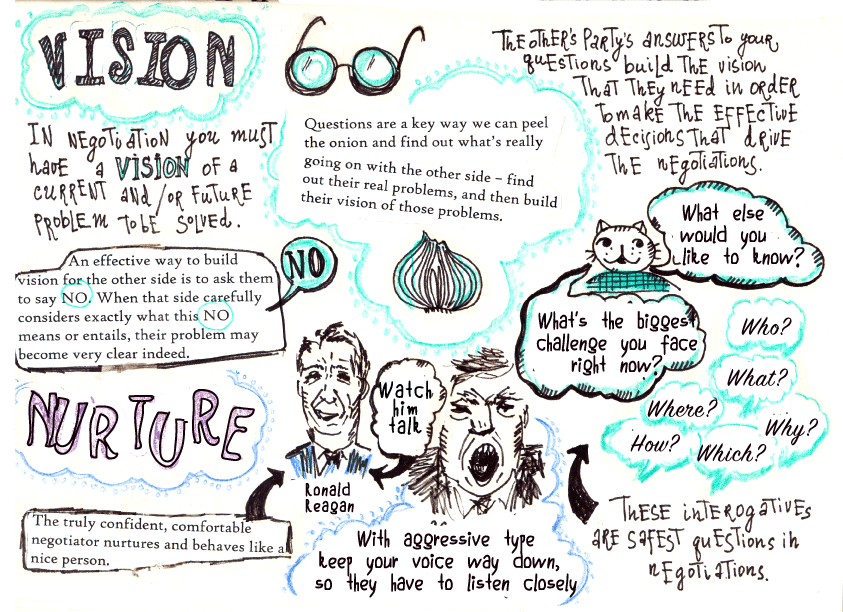 VISION
IN NEGOTIATION you must
have a VISION of a
CURRENT and/or future
PROBLEM TO BE SOLVED.
An effective way to build
vision for the other side is to ask them
to say NO. When that side carefully
considers exactly what this NO
means or entails, their problem may
become very clear indeed.
NO
Questions are a key way we can peel
the onion and find out what's really
going on with the other side – find
out their real problems, and then build
their vision of those problems.
The other's Party's answers to your
questions build the vision
That they need in order
to make the effective
decisions that drive
the negotiations.
What else
would you
like to know?
What's the biggest
challenge you face
right now?
Who?
What?
Where?
Why?
How?
Which?
These interogatives
are safest questions in
negotiations.
NURTURE
The truly confident, comfortable
negotiator nurtures and behaves like a
nice person.
Ronald
Reagan
Watch
him
talk
With aggressive type
keep your voice way down,
so they have to listen closely